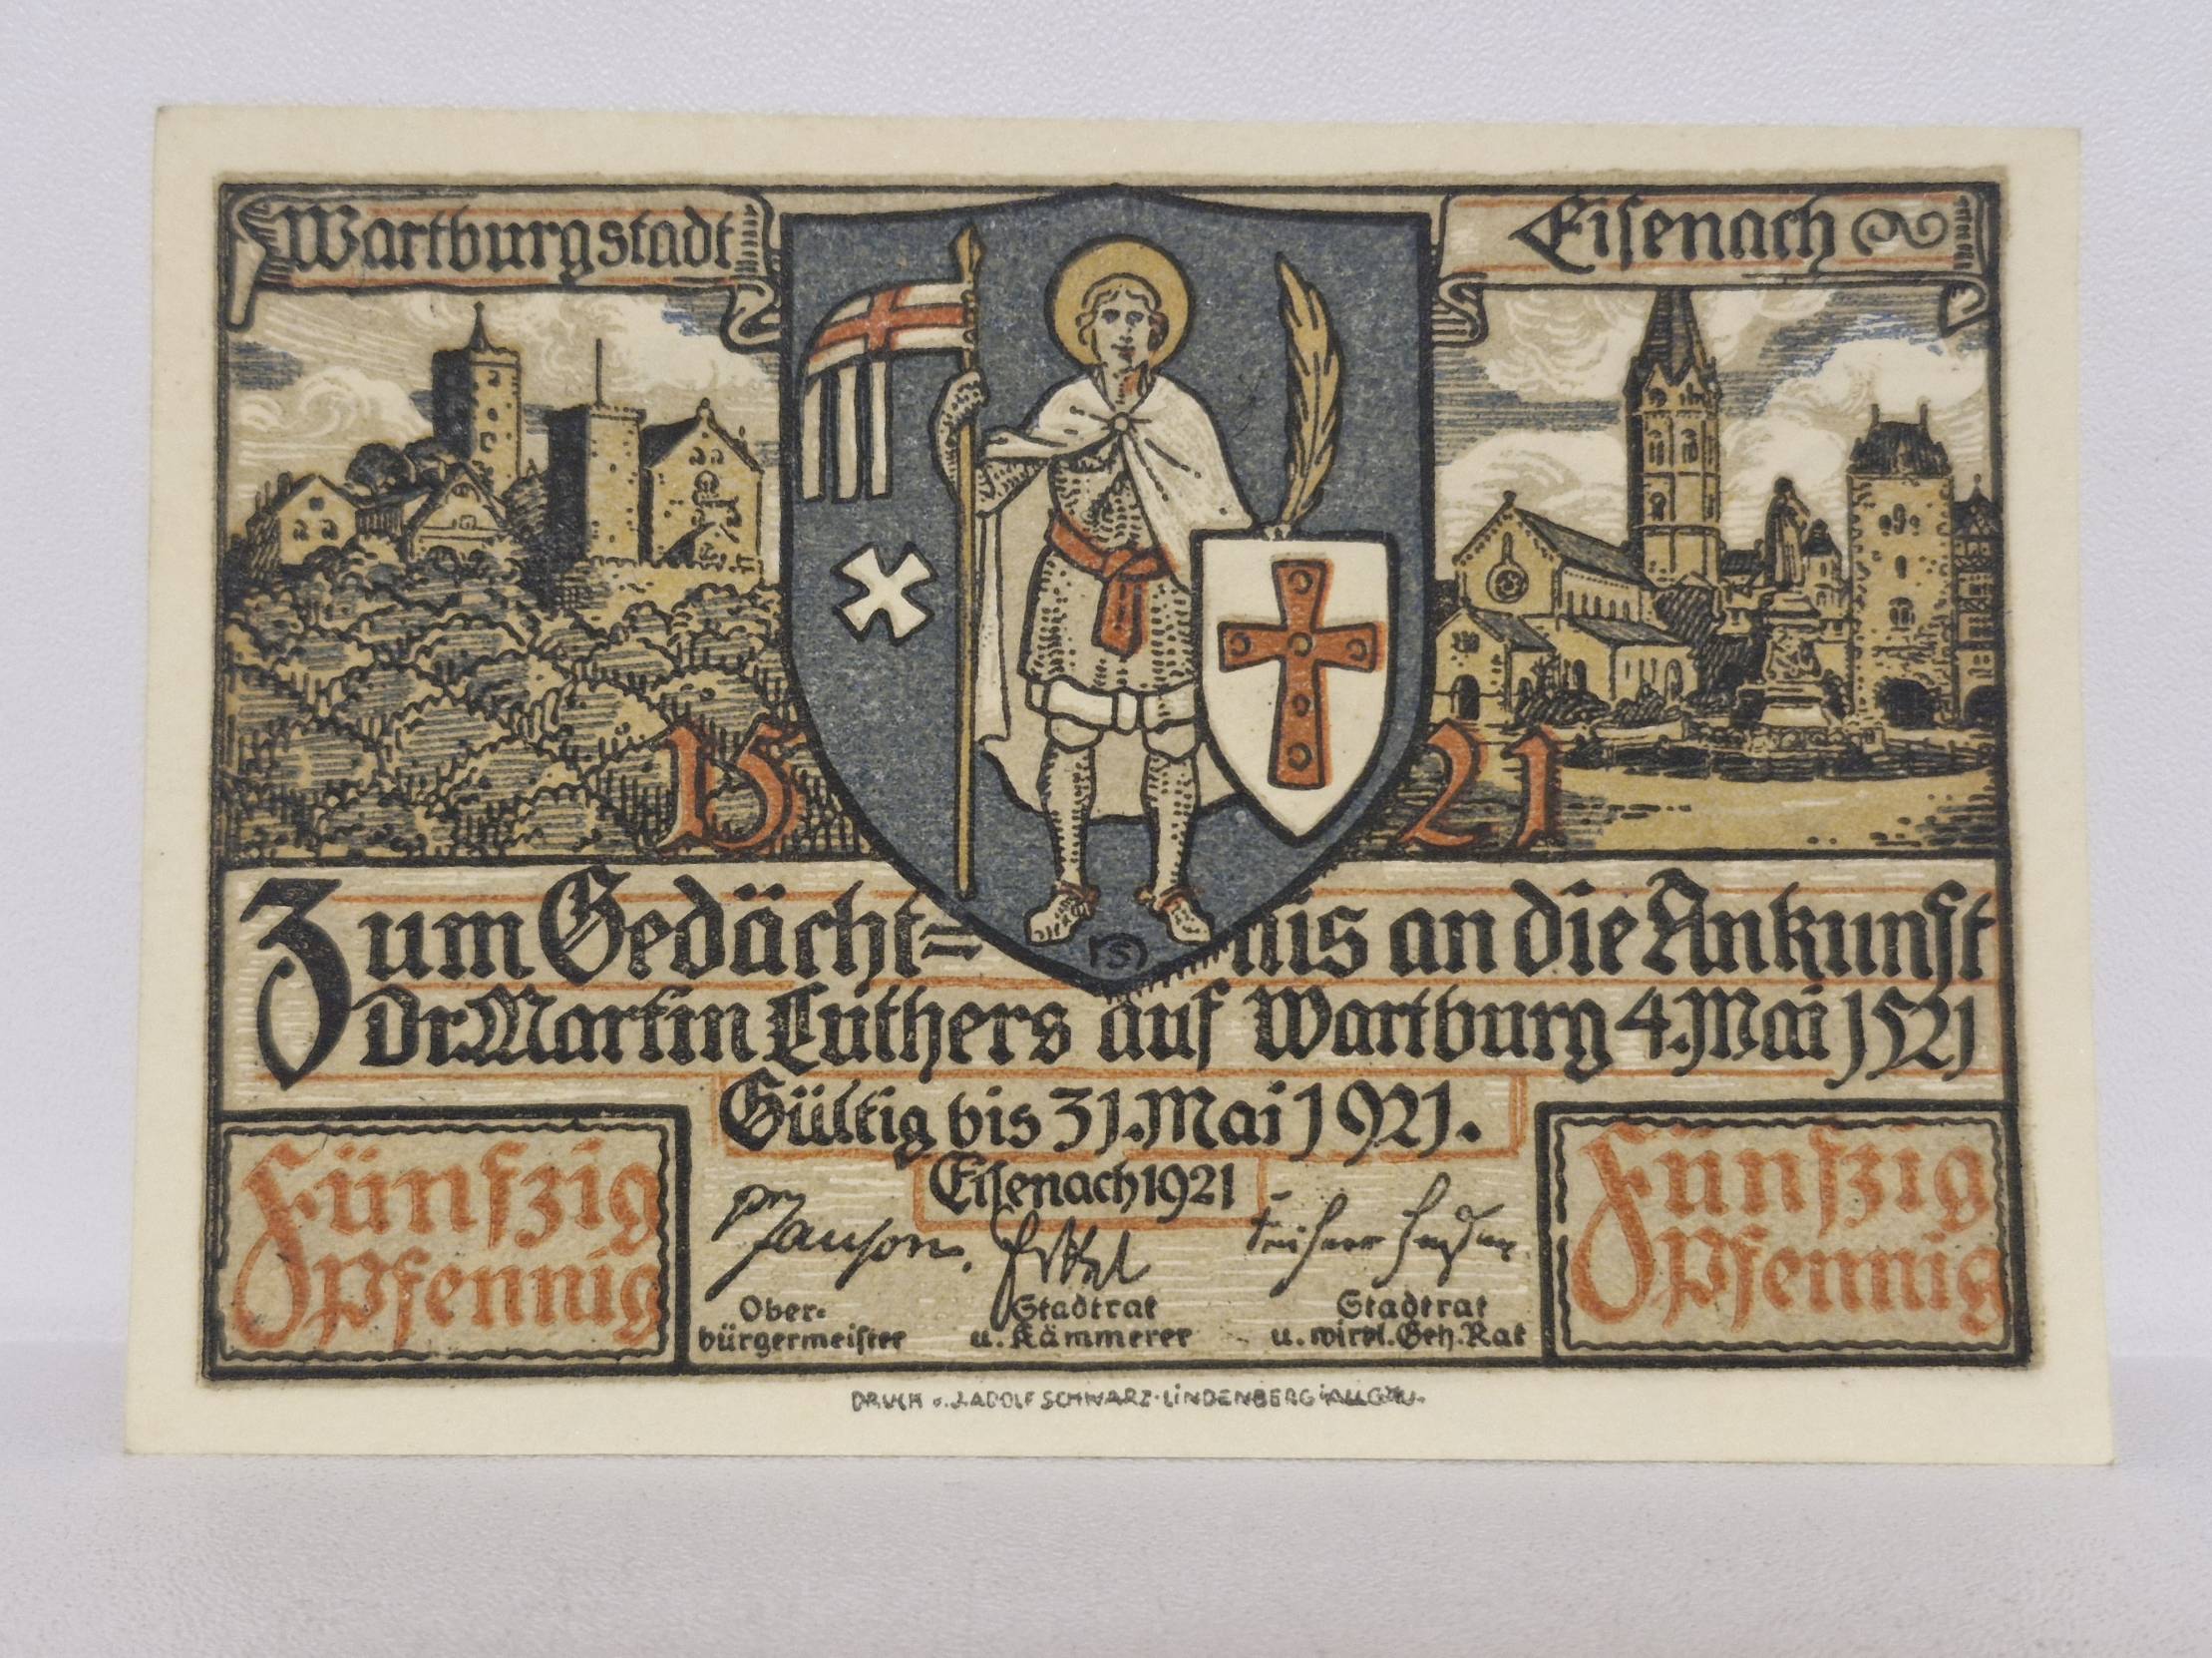 Wartburgstadt
Eisenach
15 21
Zum Gedächt=nis an die Ankunft
Dr. Martin Luthers auf Wartburg 4. Mai 1521
Gültig bis 31. Mai 1921.
Eisenach 1921
Fünfzig
Pfennig
Fünfzig
Pfennig
Janson.
Ober-
bürgermeister
Stadtrat
u. Kämmerer
Stadtrat
u. wirkl. Geh. Rat
DRUCK v. J. ADOLF SCHWARZ · LINDENBERG i/ALLGÄU.